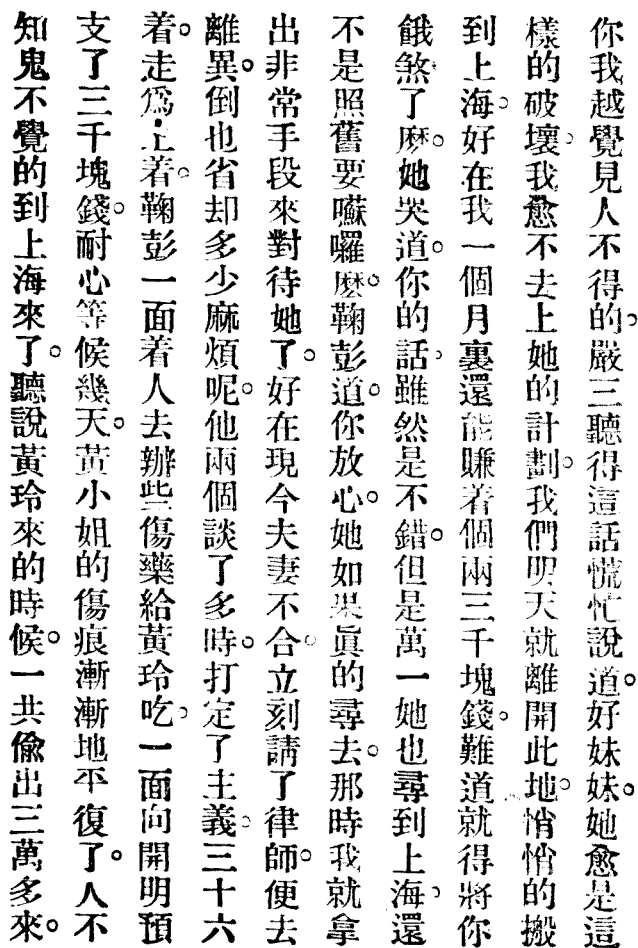 你我越覺見人不得的。嚴三聽得這話慌忙說道。好妹妹。她愈是這
樣的破壞。我愈不去上她的計劃。我們明天就離開此地。悄悄的搬
到上海。好在我一個月裏還能賺着個兩三千塊錢。難道就得將你
餓煞了麽。她哭道。你的話。雖然是不錯。但是萬一她也尋到上海。還
不是照舊要囌囉麽。鞠彭道。你放心。她如果眞的尋去。那時我就拿
出非常手段來對待她了。好在現今夫妻不合。立刻請了律師。便去
離異。倒也省却多少麻煩呢。他兩個談了多時。打定了主義。三十六
着。走爲上着。鞠彭一面着人去辦些傷藥給黃玲吃。一面向開明預
支了三千塊錢。耐心等候幾天。黃小姐的傷痕漸漸地平復了。人不
知鬼不覺的到上海來了。聽說黃玲來的時候。一共偸出三萬多來。